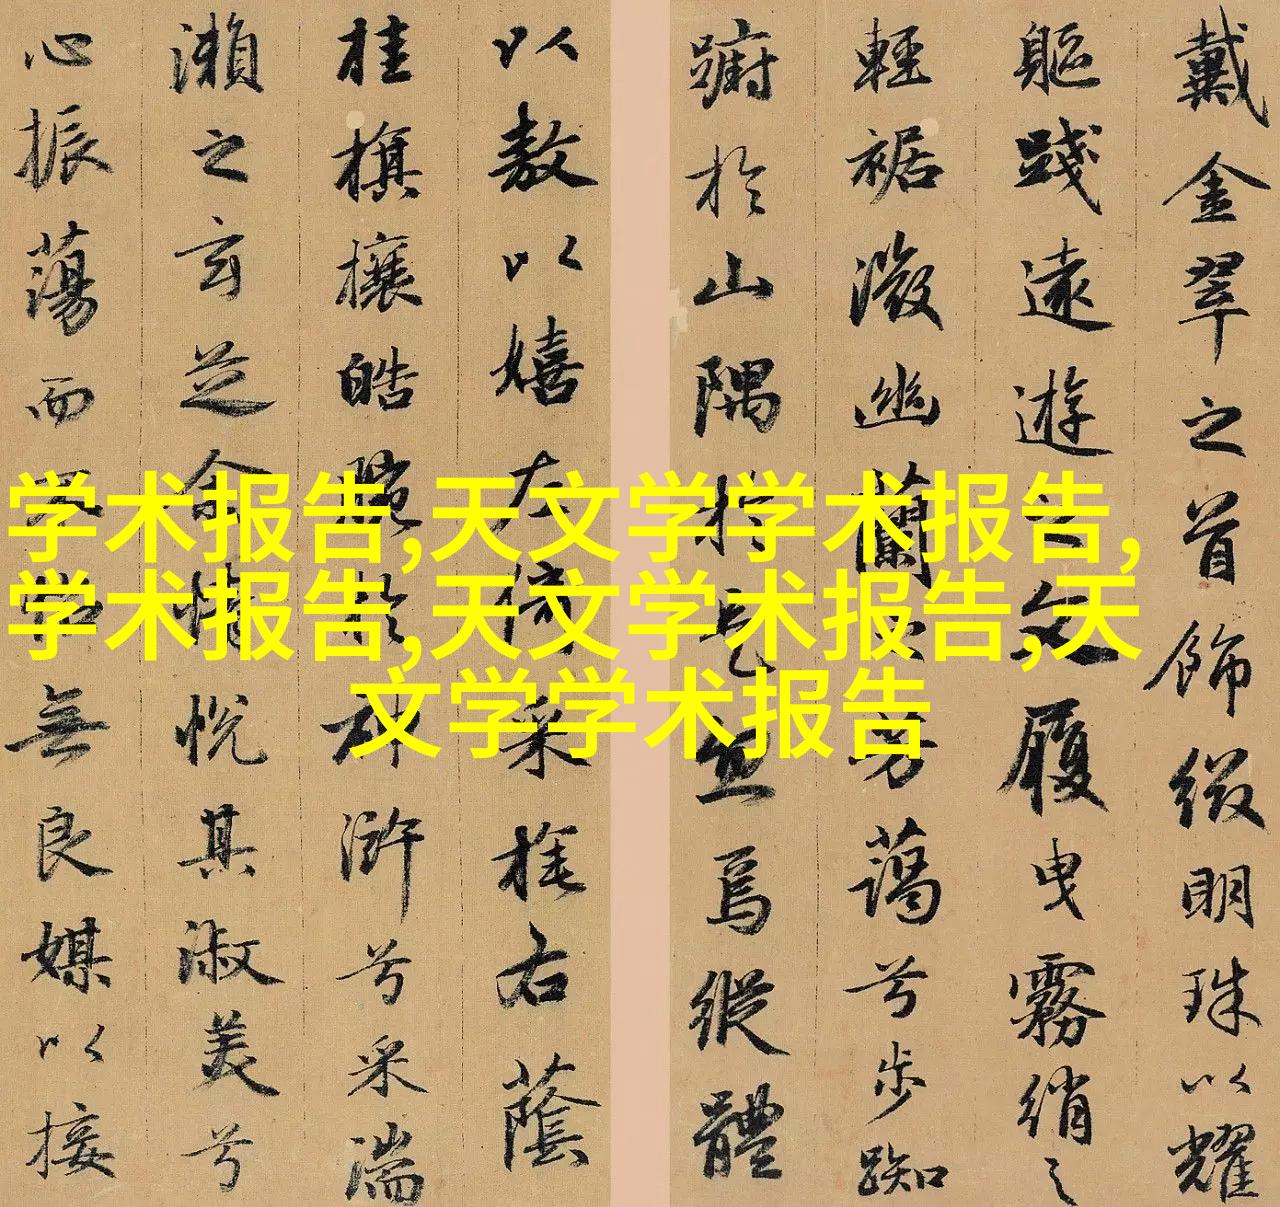 戴金翠之首飾綴明珠以耀
軀踐遠遊之文履曳霧綃之
輕裾微幽蘭之芳藹兮步踟
躕於山隅於是忽焉縱體
以敖以嬉左倚采旄右蔭
桂旗攘皓腕於神滸兮采湍
瀨之玄芝余情悅其淑美兮
心振蕩而不怡無良媒以接
学术报告,天文学学术报告,
学术报告,天文学术报告,天
文学学术报告